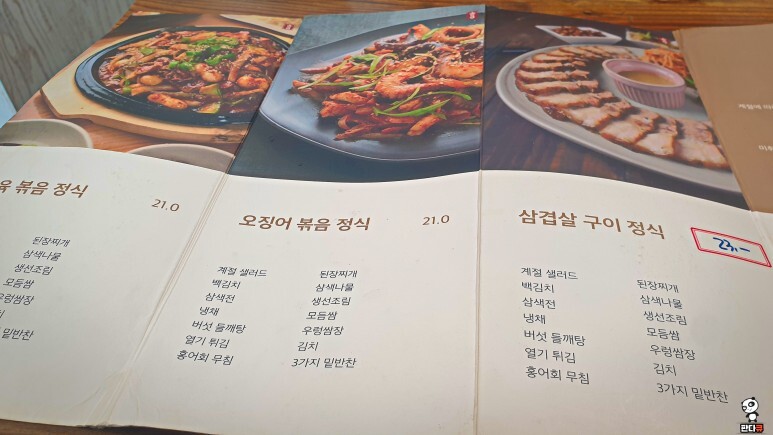 볶음 정식
21.0
된장찌개
삼색나물
생선조림
모듬쌈
우렁쌈장
밑반찬
오징어 볶음 정식
21.0
계절 샐러드
백김치
삼색전
냉채
버섯 들깨탕
열기 튀김
홍어회 무침
된장찌개
삼색나물
생선조림
모듬쌈
우렁쌈장
김치
3가지 밑반찬
삼겹살 구이 정식
23.-
계절 샐러드
백김치
삼색전
냉채
버섯 들깨탕
열기 튀김
홍어회 무침
된장찌개
삼색나물
생선조림
모듬쌈
우렁쌈장
김치
3가지 밑반찬
계절에
판다큐